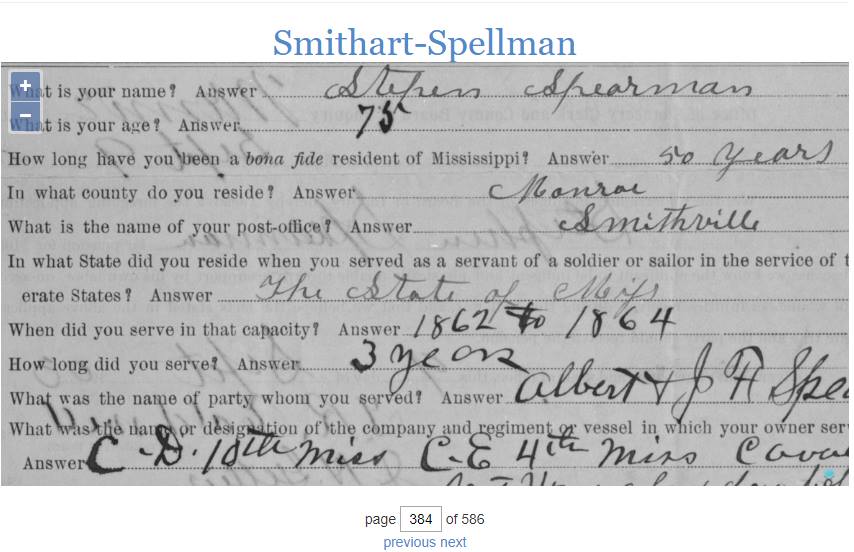 Smithart-Spellman
+
−
What is your name? Answer Stephen Spearman
What is your age? Answer 75
How long have you been a bona fide resident of Mississippi? Answer 50 years
In what county do you reside? Answer Monroe
What is the name of your post-office? Answer Smithville
In what State did you reside when you served as a servant of a soldier or sailor in the service of t
erate States? Answer The State of Miss
When did you serve in that capacity? Answer 1862 to 1864
How long did you serve? Answer 3 years
What was the name of party whom you served? Answer Albert + J F Spea
What was the name or designation of the company and regiment or vessel in which your owner ser
Answer C-D. 10th Miss C-E 4th Miss Cava
page 384 of 586
previous next